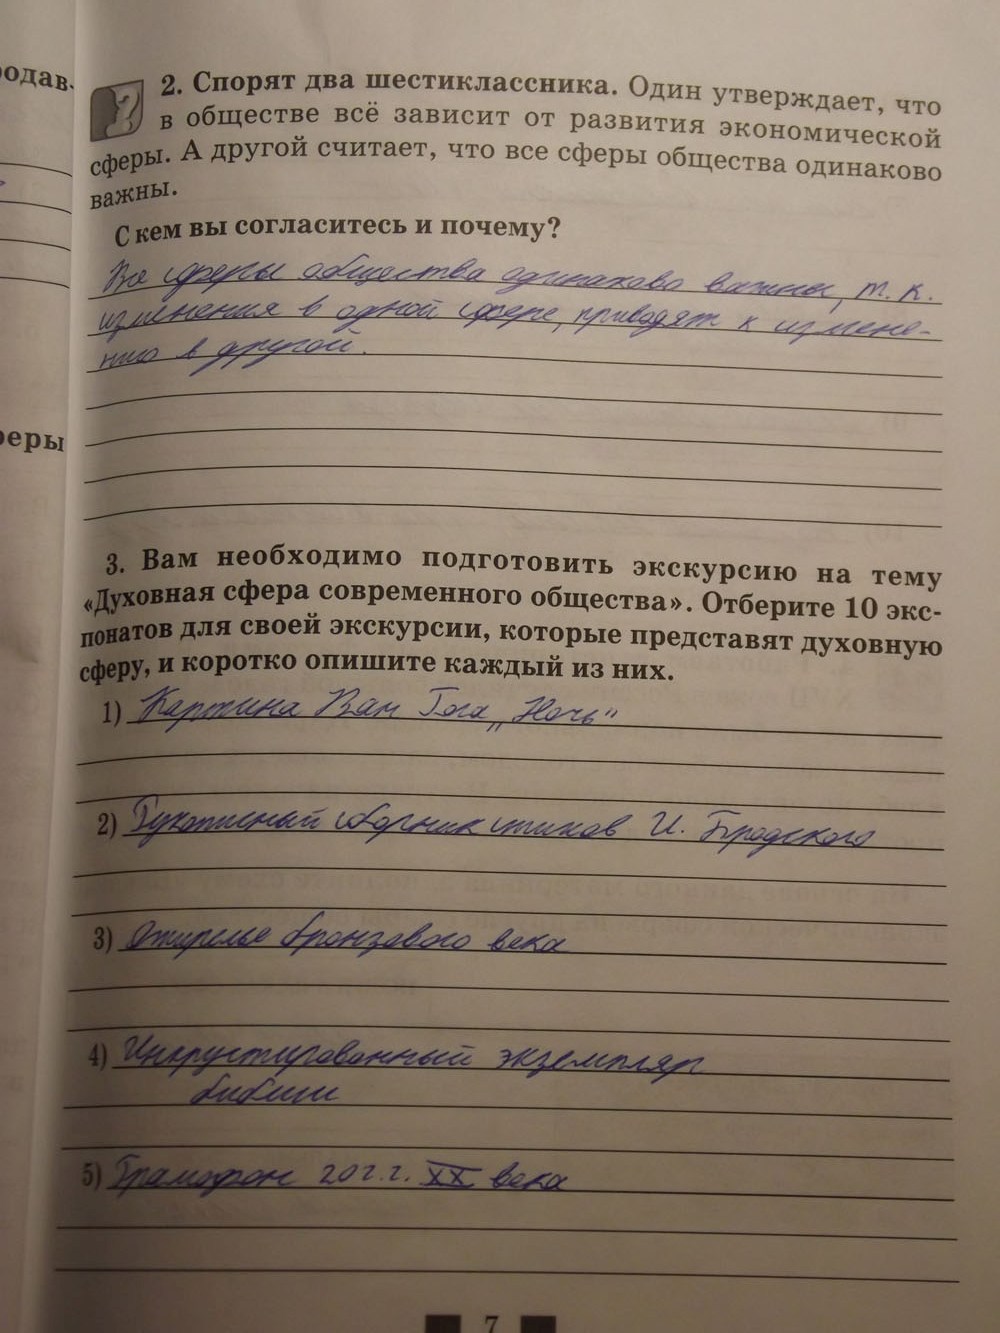 родав.
2. Спорят два шестиклассника. Один утверждает, что
в обществе всё зависит от развития экономической
сферы. А другой считает, что все сферы общества одинаково
важны.
С кем вы согласитесь и почему?
Все сферы общества одинаково важны, т. к.
изменения в одной сфере, приводят к измене-
нию в другой.
феры
3. Вам необходимо подготовить экскурсию на тему
«Духовная сфера современного общества». Отберите 10 экс-
понатов для своей экскурсии, которые представят духовную
сферу, и коротко опишите каждый из них.
1) Картина Ван Гога „Ночь"
2) Рукописный сборник стихов И. Бродского
3) Ожерелье бронзового века
4) Инкрустированный экземпляр
библии
5) Грамофон 20 г.г. XX века
7